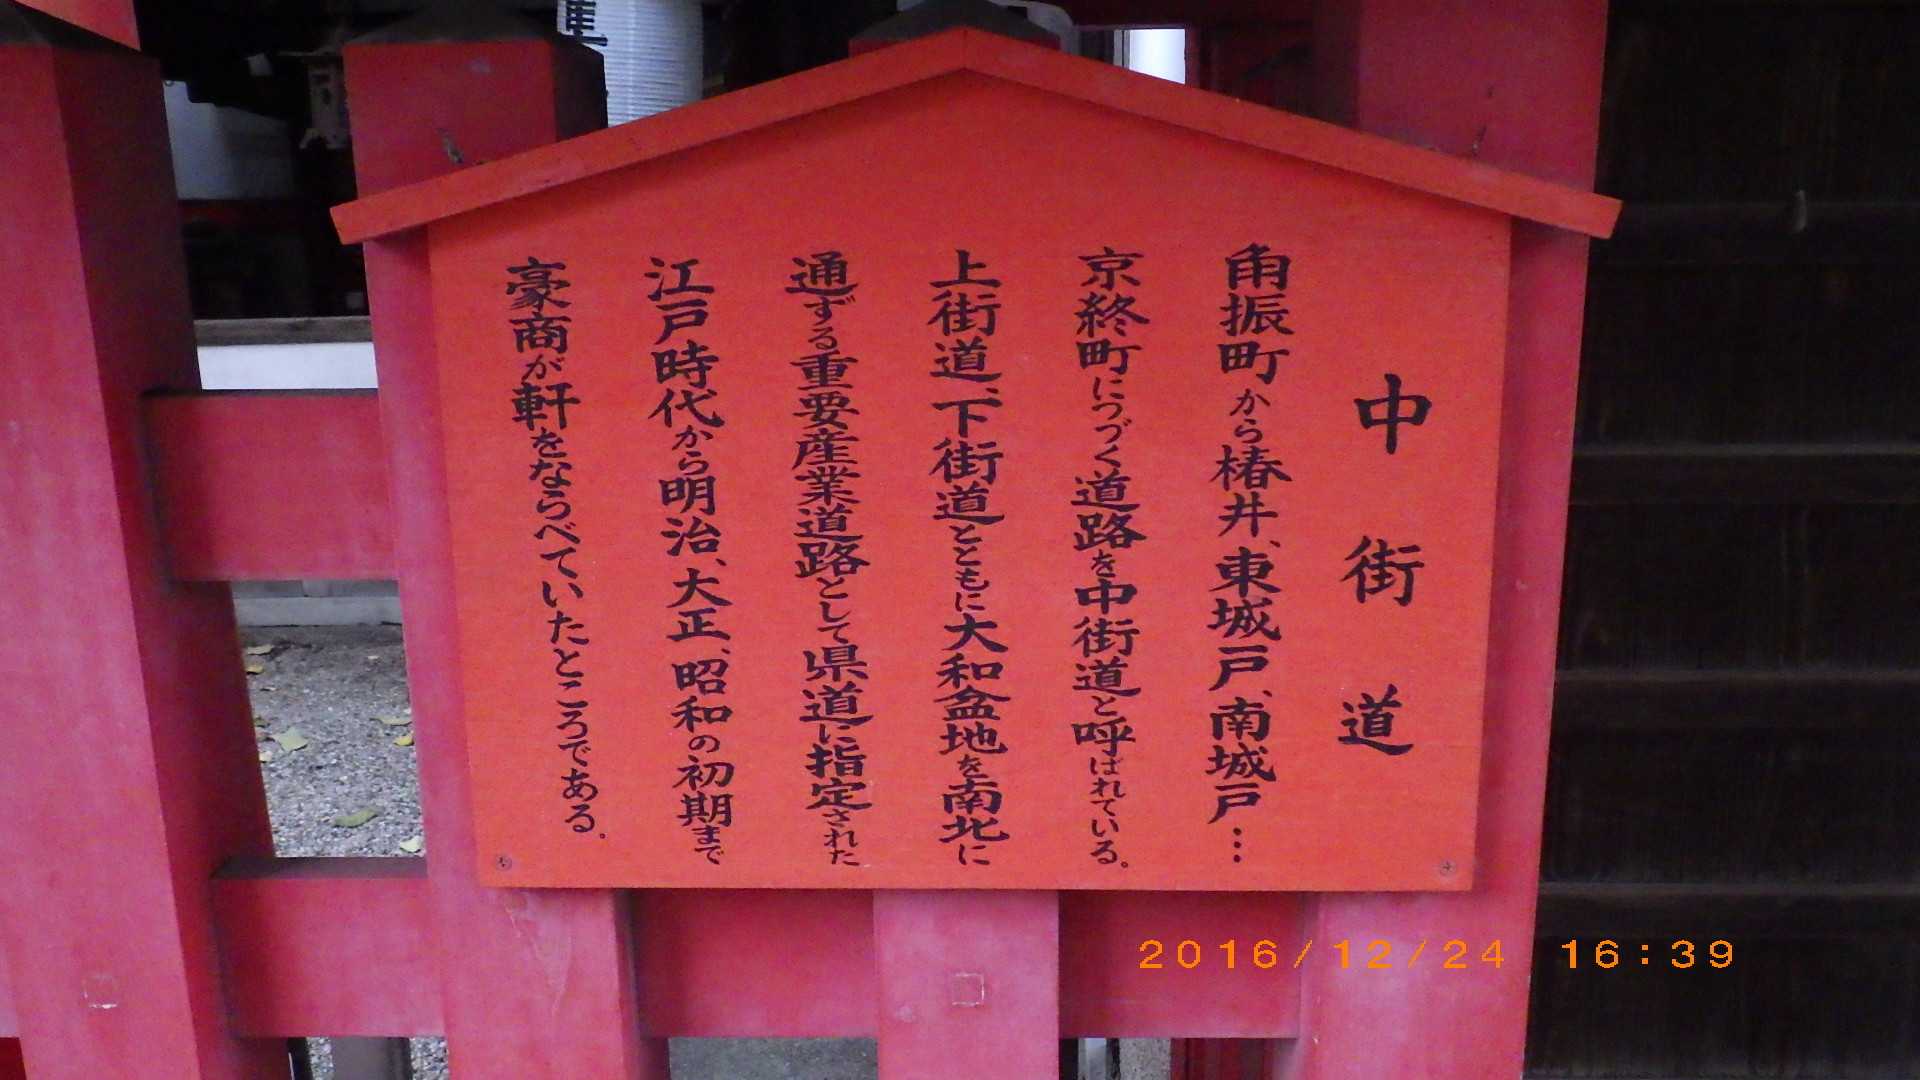 中街道
角振町から椿井、東城戸、南城戸…
京終町につづく道路を中街道と呼ばれている。
上街道、下街道とともに大和盆地を南北に
通ずる重要産業道路として県道に指定された
江戸時代から明治、大正、昭和の初期まで
豪商が軒をならべていたところである。
2016/12/24 16:39